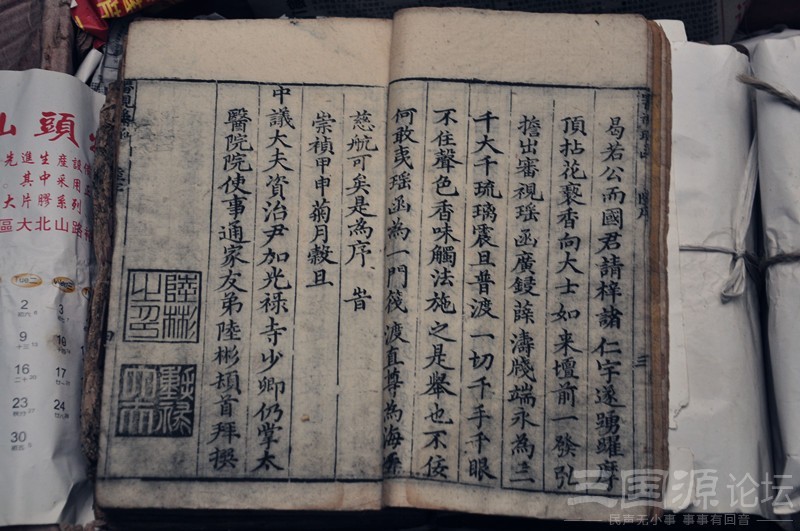 曷若公而國君請梓諸仁宇遂踴躍摩
頂拈花褻香向大士如來壇前一發弘
擔出審視瑤函廣鋟薛濤牋端永為三
千大千琉璃震旦普渡一切千手千眼
不住聲色香味觸法施之是舉也不佞
何敢曳瑤函為一門筏渡直尊為海乘
慈航可矣是為序 旹
崇禎甲申菊月穀旦
中議大夫資治尹加光祿寺少卿仍掌太
醫院院使事通家友弟陸彬頓首拜撰
陸彬之印
山頭
先進生産設備
其中采用
大片膠系列
區大北山路
2 3
9 10
16 17
23 24
30
三国源论坛
民声无小事 事事有回音